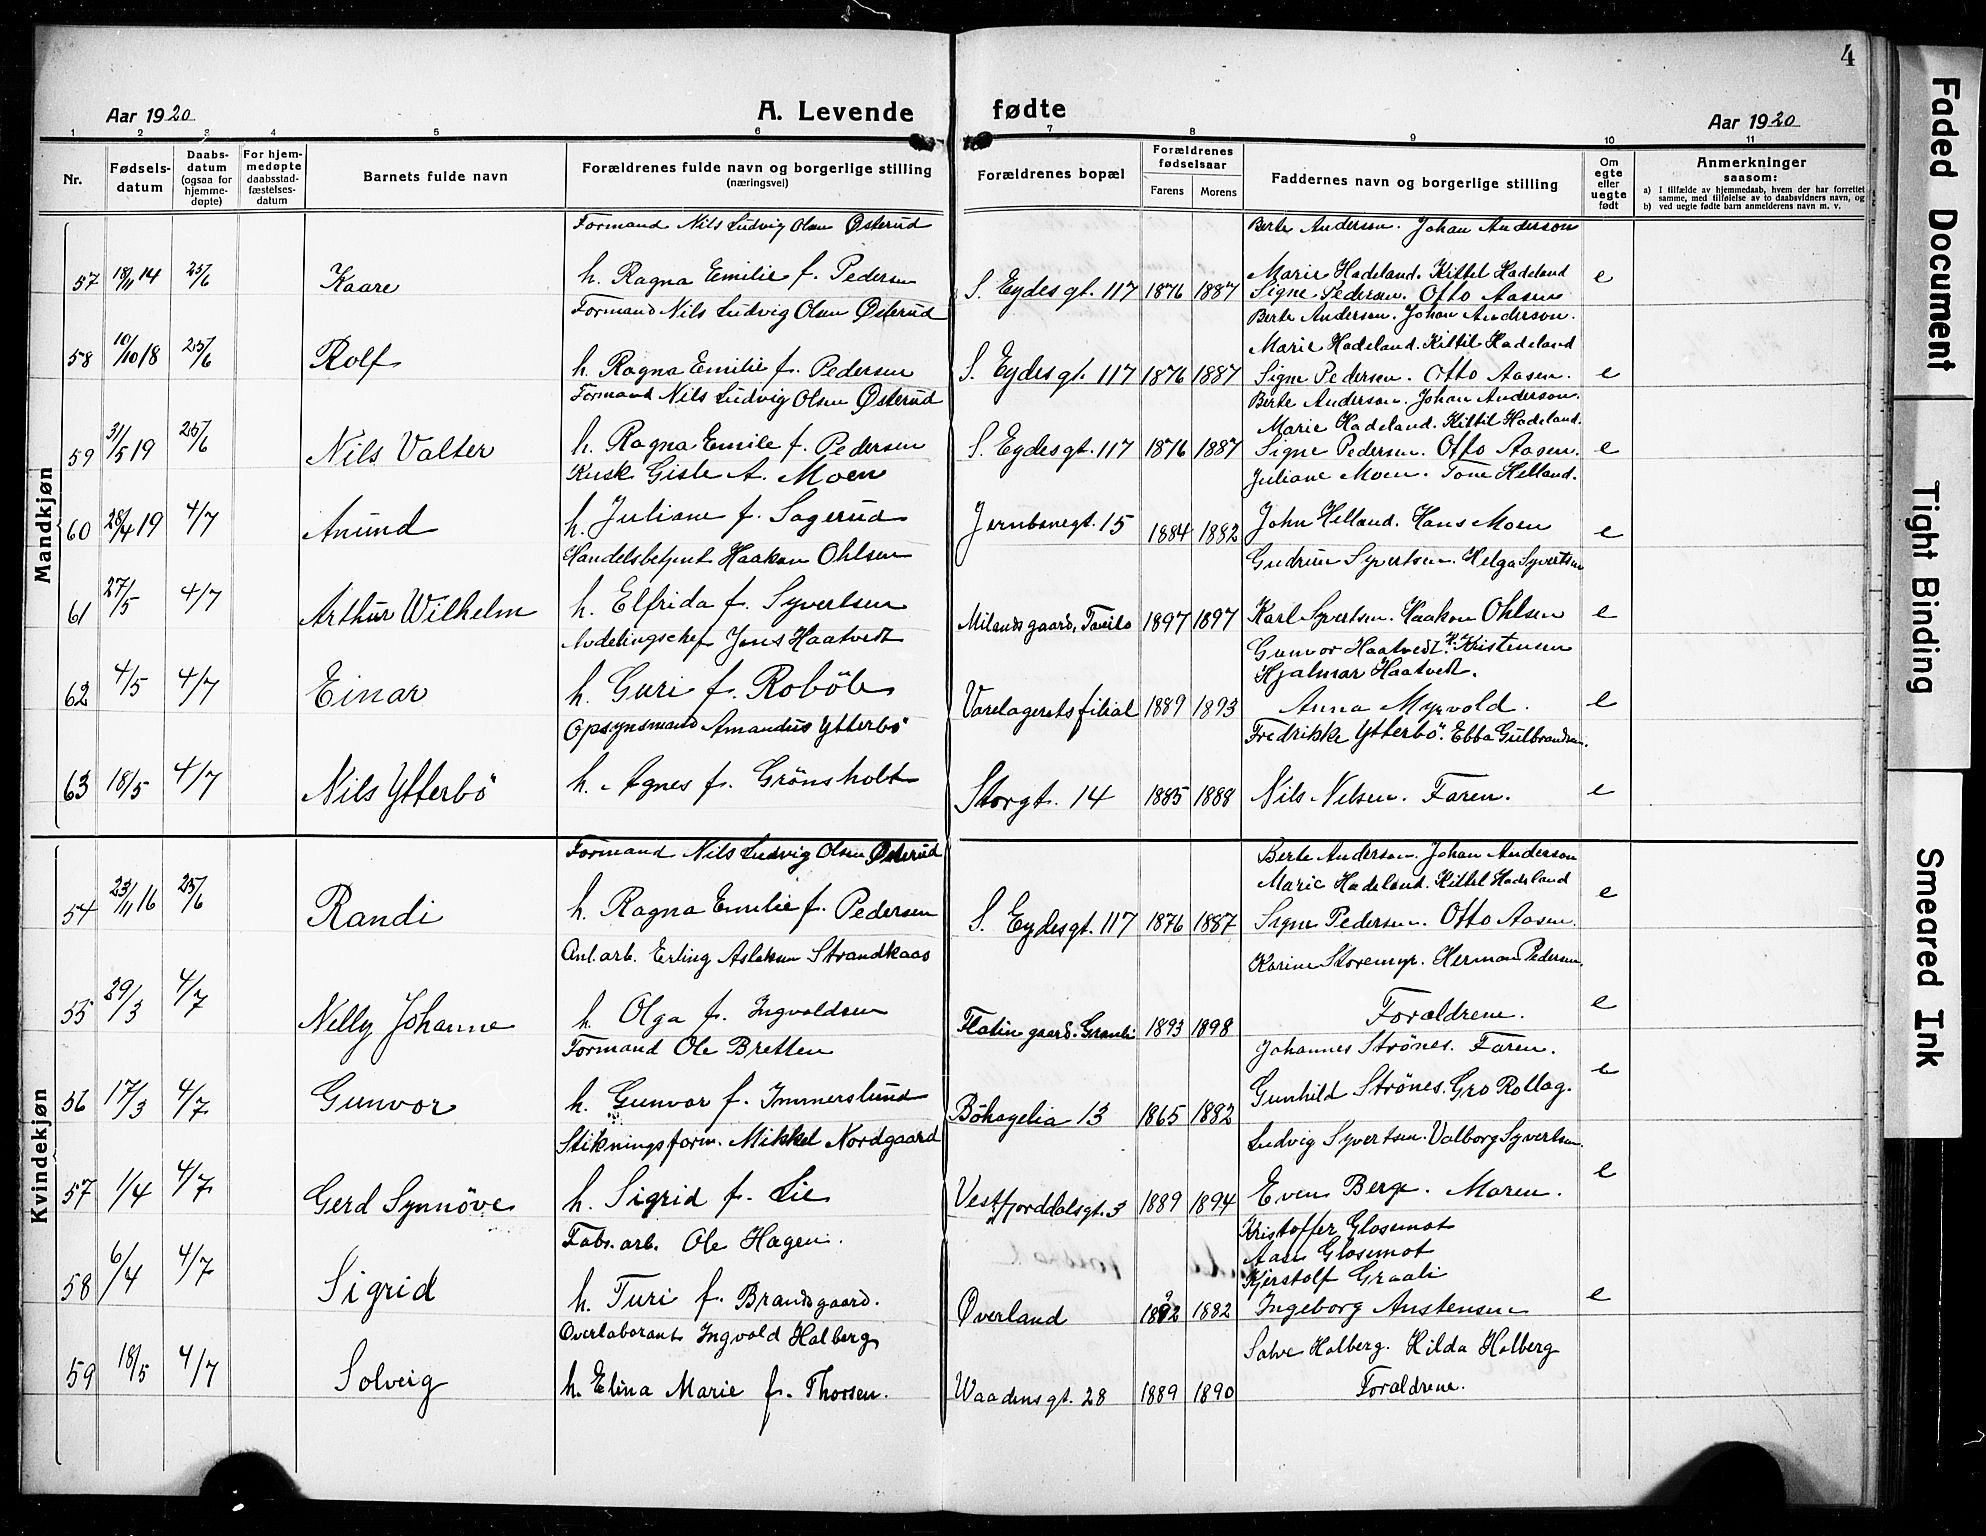 4
Aar 1920
A. Levende fødte
Aar 1920
1 2 3 4 5 6 7 8 9 10 11
Nr.
Fødsels-datum
Daabs-datum (ogsaa for hjemme-døpte)
For hjem-medøpte daabsstad-fæstelses-datum
Barnets fulde navn
Forældrenes fulde navn og borgerlige stilling (næringsvei)
Forældrenes bopæl
Forældrenes fødselsaar
Farens
Morens
Faddernes navn og borgerlige stilling
Om egte eller uegte født
Anmerkninger saasom:
a) I tilfælde av hjemmedaab, hvem der har forrettet samme, med tilføielse av to daabsvidners navn, og
b) ved uegte fødte barn anmelderens navn m. v.
Mandkjøn
Formand Nils Ludvig Olsen Østerud Berte Anderson. Johan Anderson
57 18/11 14 25/6 Kaare h. Ragna Emilie f. Pedersen S. Eydesgt. 117 1876 1887 Marie Hadeland. Kittel Hadeland e
Signe Pedersen. Otto Aasen
Formand Nils Ludvig Olsen Østerud Berte Anderson. Johan Anderson.
58 10/10 18 25/6 Rolf h. Ragna Emilie f. Pedersen S. Eydesgt. 117 1876 1887 Marie Hadeland. Kittil Hadeland
Signe Pedersen. Otto Aasen. e
Formand Nils Ludvig Olsen Østerud Berte Anderson. Johan Anderson.
59 31/5 19 25/6 Nils Valter h. Ragna Emilie f. Pedersen S. Eydesgt. 117 1876 1887 Marie Hadeland. Kittil Hadeland.
Signe Pedersen. Otto Aasen. e
Kusk Gisle A. Moen Juliane Moen. Tone Helland.
60 28/4 19 4/7 Anund h. Juliane f. Sagerud Jernbanegt. 15 1884 1882 John Helland. Hans Moen e
Handelsbetjent Haakon Ohlsen Gudrun Syvertsen. Helga Syvertsen
61 27/5 4/7 Arthur Wilhelm h. Elfrida f. Syvertsen Milandsgaard, Tveito 1897 1897 Karl Syvertsen. Haakon Ohlsen e
Avdelingschef Jens Haatvedt Gunvor Haatvedt. Kristensen
Hjalmar Haatvedt.
62 4/5 4/7 Einar h. Guri f. Robøle Varelagerets filial 1889 1893 Anna Myrvold. e
Opsynsmand Amandus Ytterbö Fredrikke Ytterbö. Ebba Gulbrandsen.
63 18/5 4/7 Nils Ytterbö h. Agnes f. Grönsholt Storgt. 14 1885 1888 Nils Nilsen. Faren. e
Kvindekjøn
Formand Nils Ludvig Olsen Østerud Berte Anderson. Johan Anderson
Marie Hadeland. Kittel Hadeland
54 23/11 16 25/6 Randi h. Ragna Emilie f. Pedersen S. Eydesgt. 117 1876 1887 Signe Pedersen. Otto Aasen. e
Anl.arb. Erling Aslaksen Strandkaas Karine Storemyr. Herman Pedersen
55 29/3 4/7 Nelly Johanne h. Olga f. Ingvoldsen Flatin gaard. Graneli 1893 1898 Forældrene. e
Formand Ole Bretten Johannes Strönes. Faren.
56 17/3 4/7 Gunvor h. Gunvor f. Immerslund Böhagelia 13 1865 1882 Gunhild Strönes. Gro Rollag. e
Stikningsform. Mikkel Nordgaard Ludvig Syvertsen. Valborg Syvertsen.
57 1/4 4/7 Gerd Synnöve h. Sigrid f. Lie Vestfjorddalsgt. 3 1889 1894 Even Berge. Moren. e
Fabr.arb. Ole Hagen. Kristoffer Glosemot
Aase Glosemot
58 6/4 4/7 Sigrid h. Turi f. Brandsgaard. Øverland 1882 Kjerstolf Graali
Ingeborg Austensen e
Overlaborant Ingvold Holberg Salve Holberg. Hilda Holberg
59 18/5 4/7 Solveig h. Elina Marie f. Thorsen. Waadensgt. 28 1889 1890 Forældrene.
Faded Document
Tight Binding
Smeared Ink